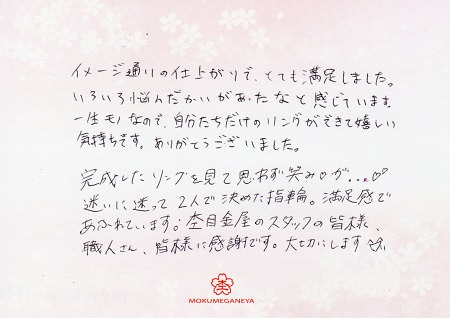 イメージ通りの仕上がりで、とても満足しました。
いろいろ悩んだかいがあったなと感じています。
一生モノなので、自分たちだけのリングができて嬉しい
気持ちです。ありがとうございました。
完成したリングを見て思わず笑み♡が...♡♡
迷いに迷って2人で決めた指輪。満足感で
あふれています。杢目金屋のスタッフの皆様、
職人さん、皆様に感謝です。大切にします
杢
MOKUMEGANEYA